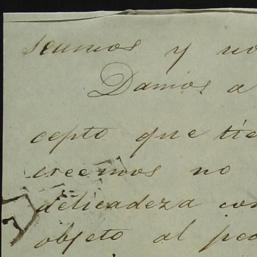 scumos y no
Damos a
cepto que tie
creemos no
delicadeza con
objeto al ped